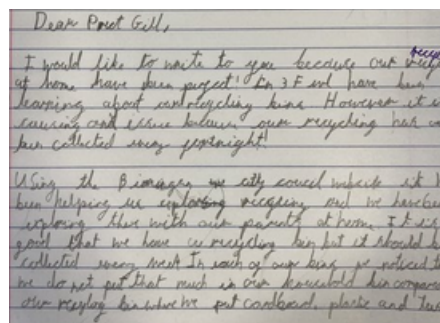 Dear Preet Gill,
I would like to write to you because our recy
at home have been project! In 3F we have been
learning about recycling bins. However it
causing an issue because our recycling has
been collected every fortnight!
Using the city council website it
been helping us exploring recycling and we have been
exploring this with our parents at home. It is
good that we have a recycling bin but it should be
collected every week In each of our bins we noticed
we do not put that much in our household bin compare
our recycling bin where we put cardboard, plastic and